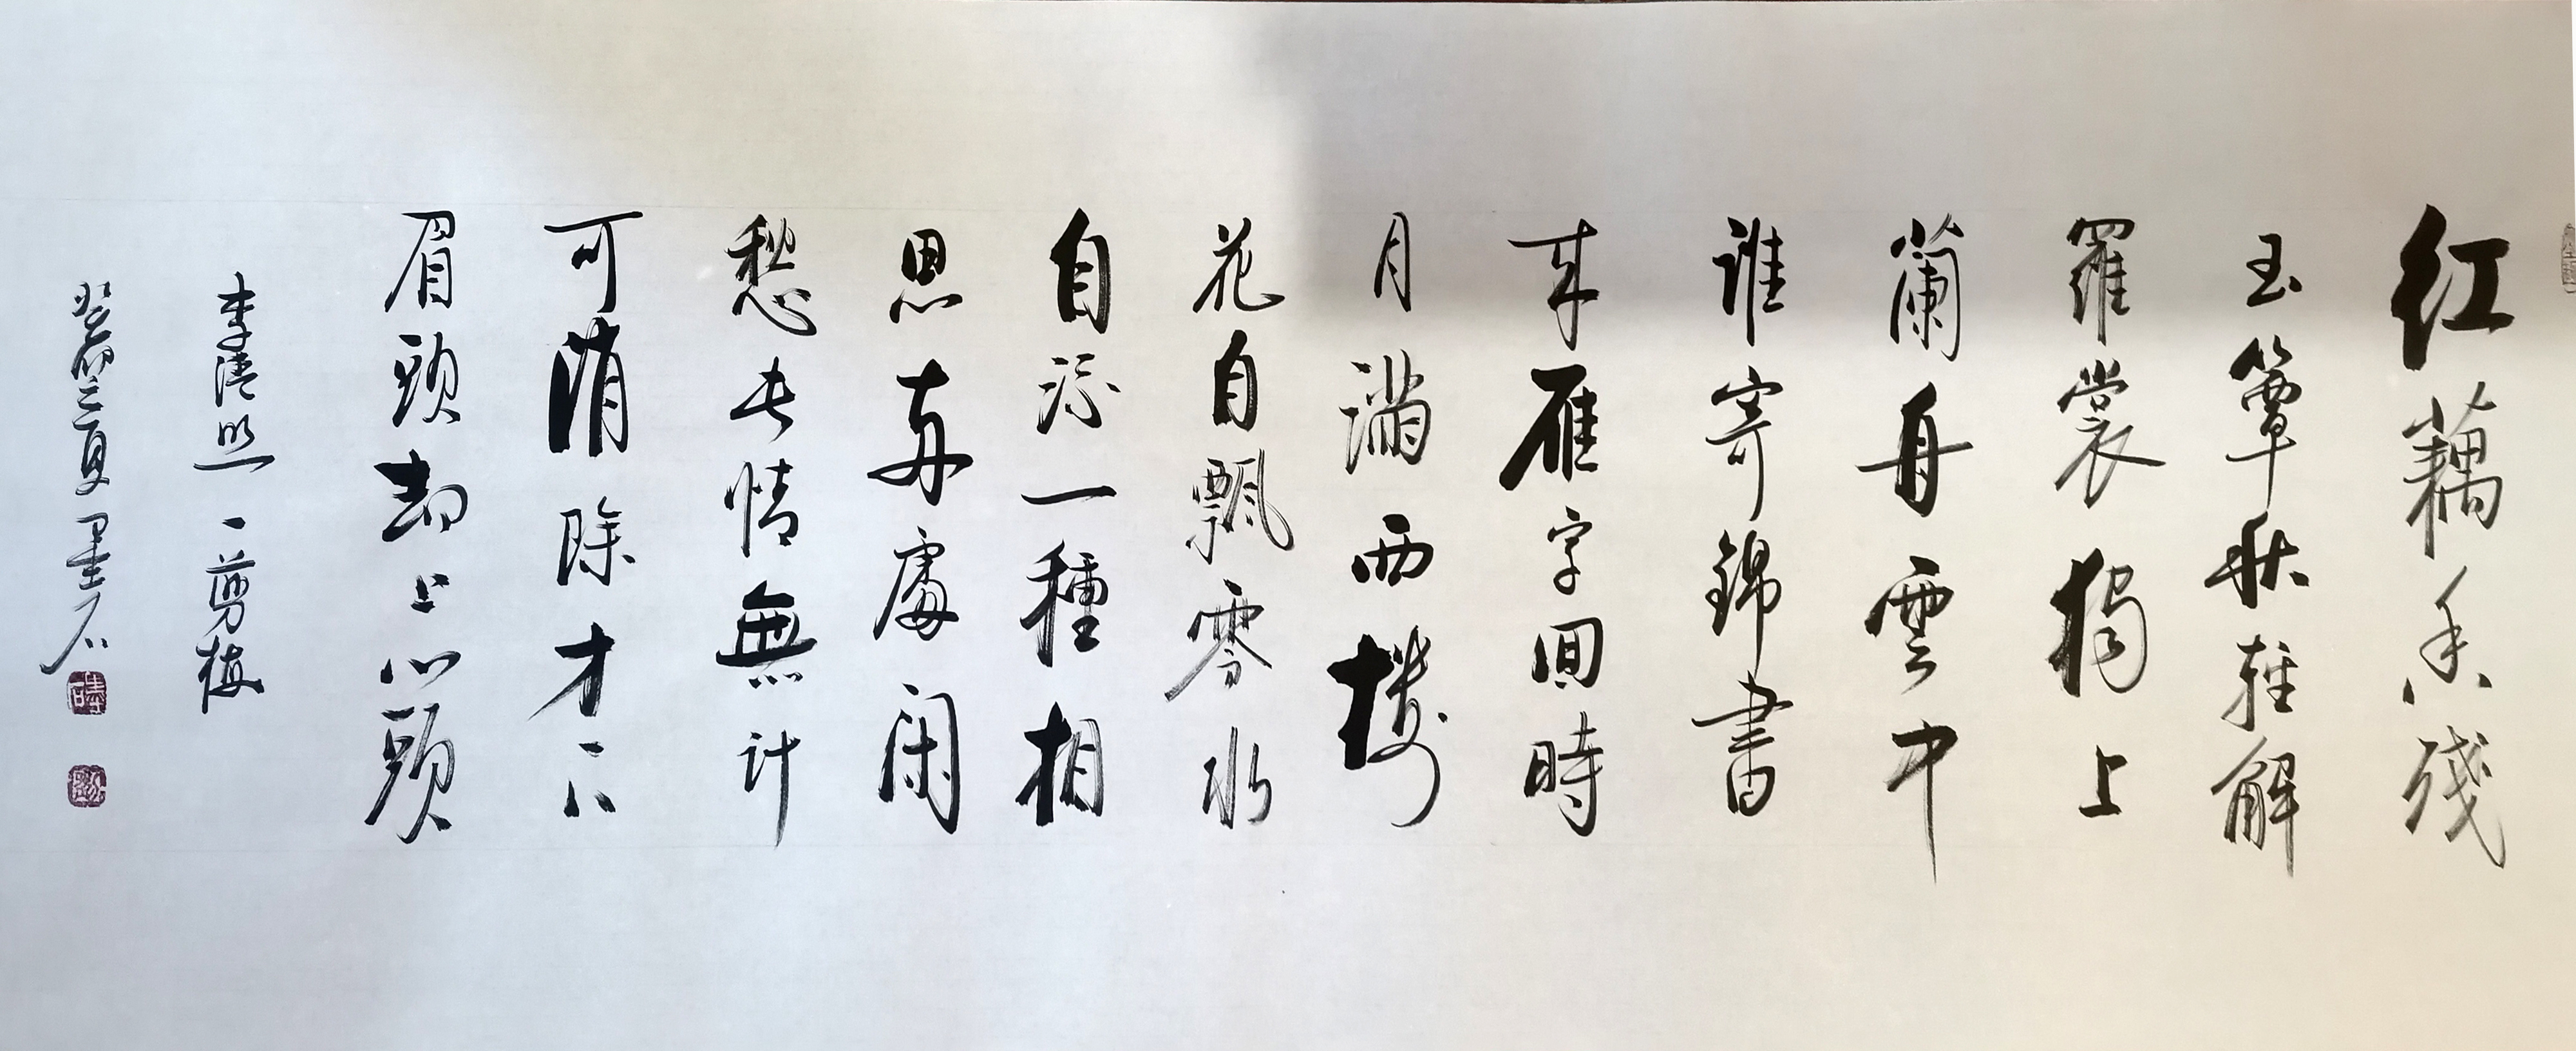 红藕香残
玉簟秋輕解
羅裳獨上
蘭舟雲中
谁寄錦書
来雁字回時
月满西楼
花自飘零水
自流一種相
思两處闲
愁此情無計
可消除才下
眉頭却上心頭
李清照一剪梅
癸卯之夏墨石